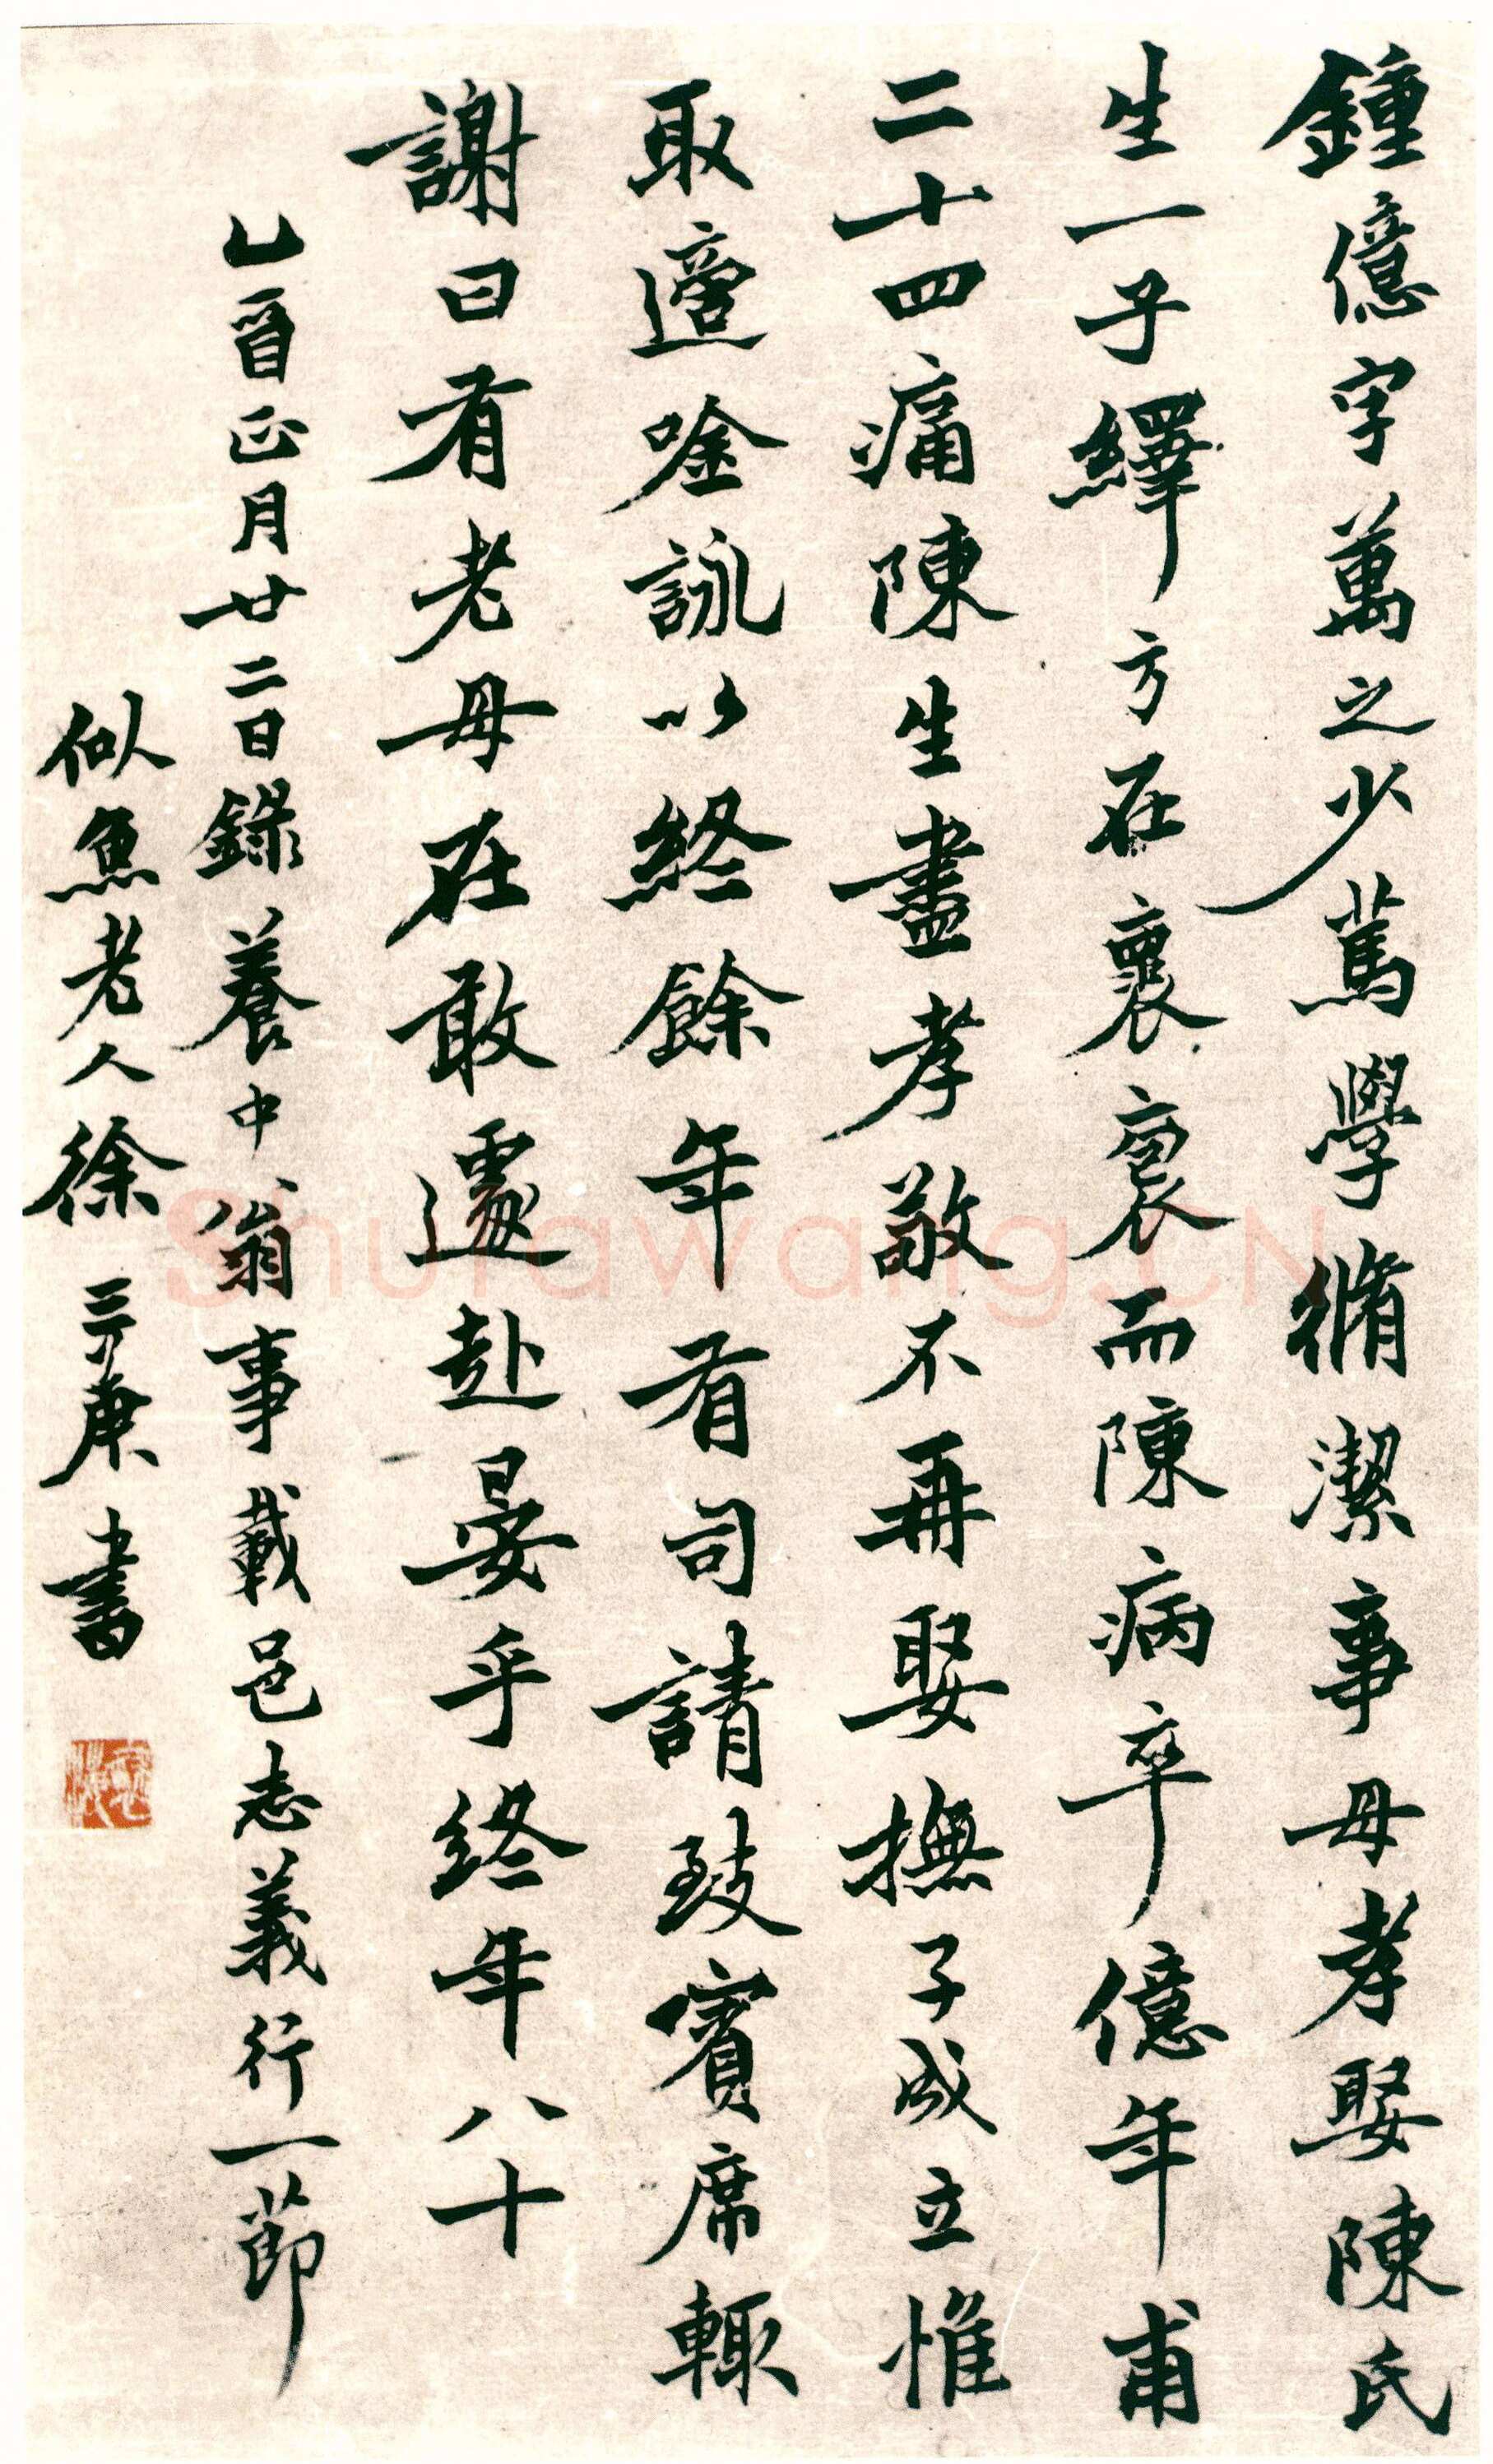 鍾億字萬之少篤學脩潔事母孝娶陳氏
生一子繹方在襄褒而陳病卒億年甫
二十四痛陳生生盡孝敬不再娶撫子成立惟
取適唫詠以終餘年有司請致賓席輒
謝曰有老母在敢遽赴晏乎終年八十
乙酉正月廿二日錄養中翁事載邑志義行一節
似魚老人徐三庚書
Shufawang.CN